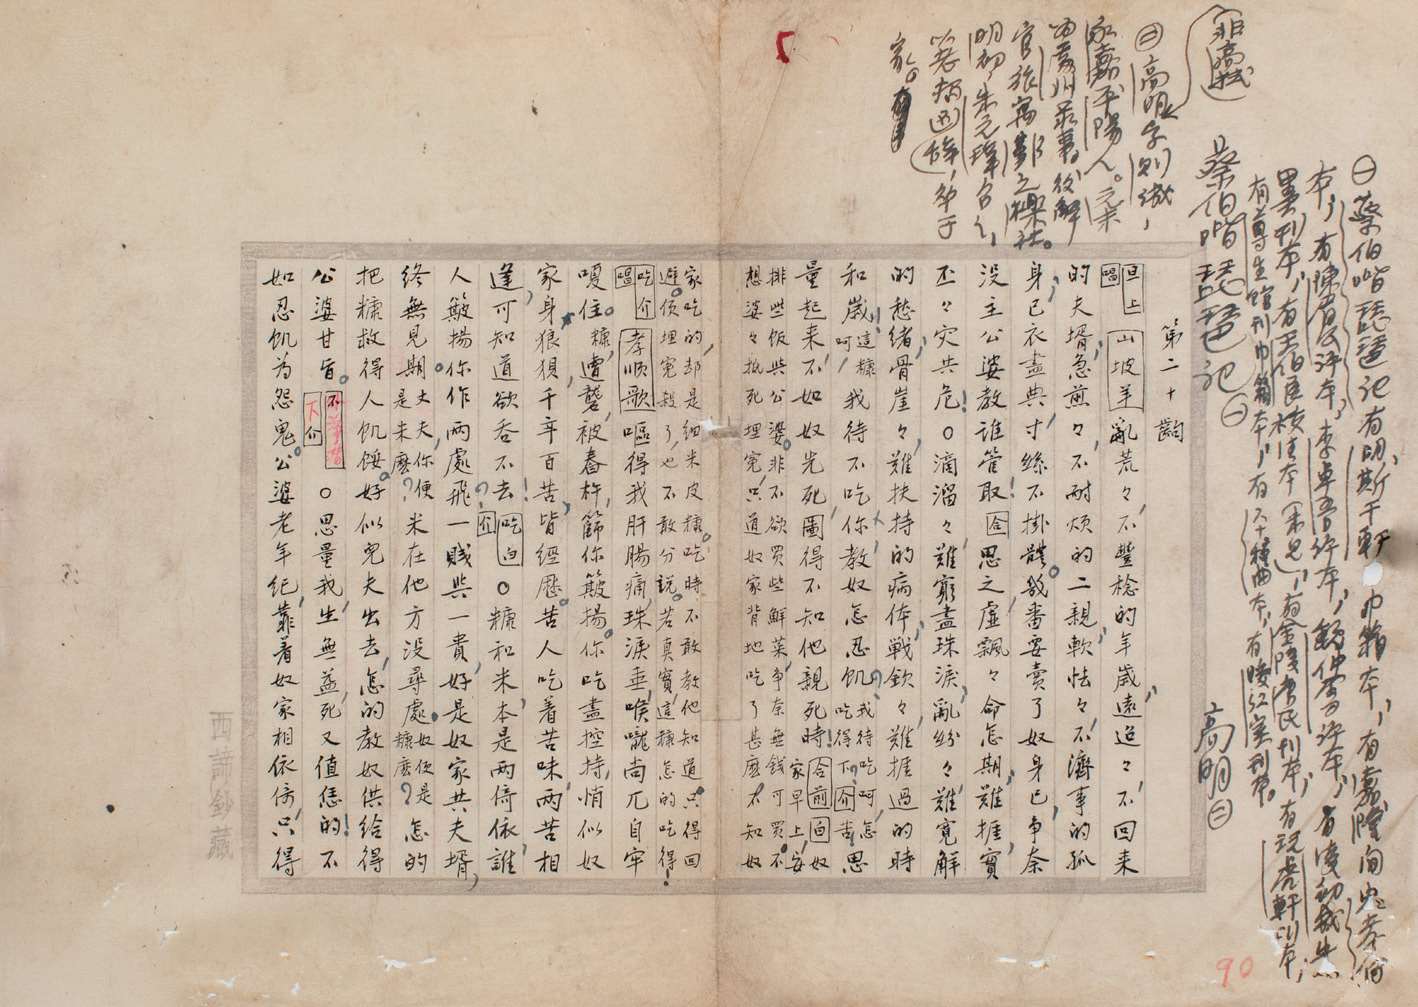 ㊀蔡伯喈琵琶記有明斯干軒
巾箱本，有嘉隆間忠孝伯
本，有陳眉公評本，李卓吾評本，
有凌初成
墨刊本，有王伯良校注本（未見），有金陵唐氏刊本，有玩虎軒刊本，
有尊生館刊巾箱本，有六十種曲本，有暖紅室刊本。
蔡伯喈琵琶記㊀
高明㊁
（非高拭）
㊁高明字則誠，
永嘉平陽人。
官旅寓鄞之櫟社。
明初，朱元璋召之，
以老病辭，卒于
家。
第二十齣
旦上唱 山坡羊 亂荒々，不豐稔的年歲，遠迢々，不回来
的夫壻，急煎々，不耐煩的二親，軟怯々，不濟事的孤
身己。衣盡典，寸絲不掛體。幾番要賣了奴身己，争奈
没主公婆教誰管取！合 思之，虛飄々命怎期，難捱，實
丕々灾共危！○滴溜々難窮盡珠淚，亂紛々難寬解
的愁緒，骨崖々難扶持的病体，戦欽々難捱過的時
和歲，這糠呵我待不吃你，教奴怎忍飢？我待吃呵，怎吃得下？介 苦思
量起来，不如奴先死，圖得不知他親死時！合前 白 奴家早上安
排些飯與公婆，非不欲買些鮮菜，争奈無錢可買。不
想婆々抵死埋寃，只道奴家背地吃了甚麽。不知奴
家吃的，却是細米皮糠。吃時不敢教他知道，只得回
避。便埋寃殺了，也不敢分説。苦！真實這糠怎的吃得！
吃介唱 孝順歌 嘔得我肝腸痛，珠淚垂，喉嚨尚兀自牢
嗄住。糠，遭礱被舂杵，篩你簸揚你，吃盡控持，悄似奴
家身狼狽，千辛百苦皆經歷。苦人吃着苦味，兩苦相
逢，可知道欲吞不去！吃介 白 ○糠和米，本是兩倚依，誰
人簸揚你作兩處飛？一賤與一貴，好是奴家共夫壻，
終無見期。丈夫，你便是米麽？米在他方没尋處。奴便是糠麽？怎的
把糠救得人飢餒？好似兒夫出去，怎的教奴供給得
公婆甘旨。下介 ○思量我，生無益，死又值恁的！不
如忍飢為怨鬼。公婆老年紀，靠着奴家相依倚，只得
西諦鈔藏
90